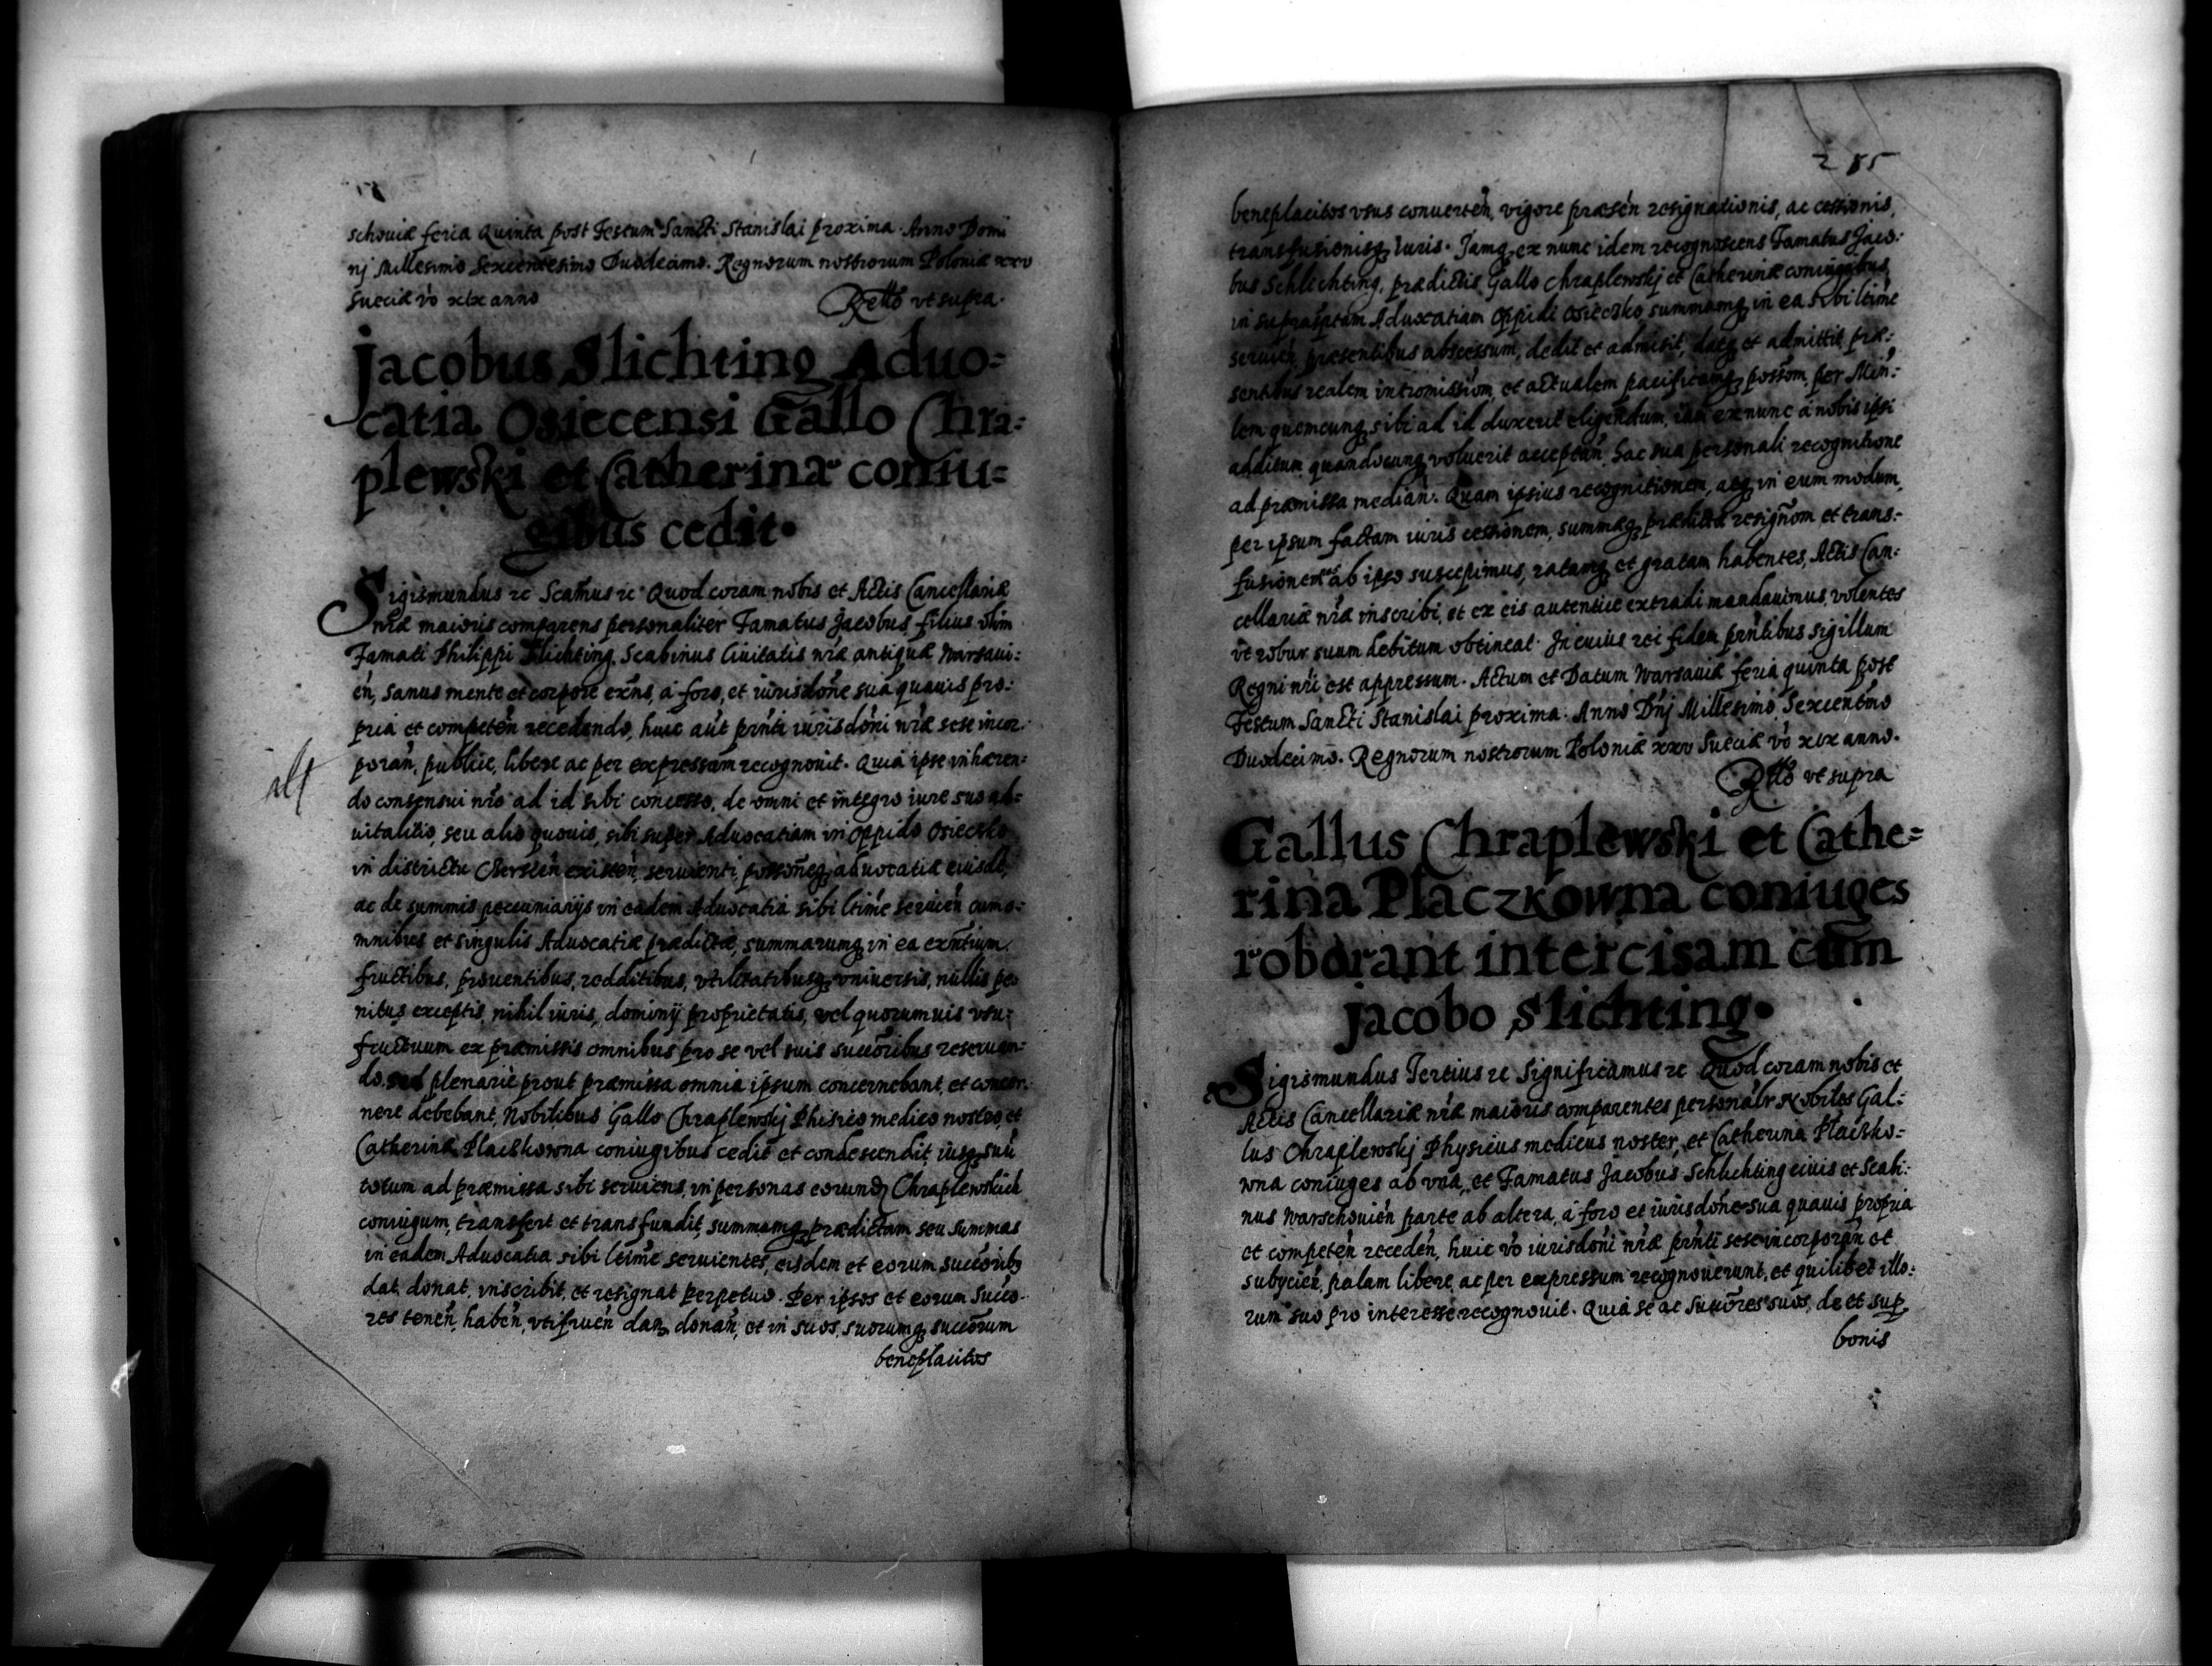 schouiæ feria Quinta post Festum Sancti Stanislai proxima. Anno Domi
nj Millesimo Sexcentesimo Duodecimo. Regnorum nostrorum Poloniæ xxv
Sueciæ vo xix anno
Rello vt supra.
Jacobus Slichting Aduo=
catia Osiecensi Gallo Chra=
plewski et Catherinæ coniu=
gibus cedit.
Sigismundus rc Scamus rc Quod coram nobis et Actis Cancellariæ
nræ maioris comparens personaliter Famatus Jacobus filius olim
Famati Philippi Slichting, Scabinus Ciuitatis nræ antiquæ Warsaui:
en, sanus mente et corpore exns, á foro, et iurisdone sua quauis pro:
pria et competen recedendo, huic aut prnti iurisdoni nræ sese incor:
poran, publice, libere ac per expressum recognouit. Quia ipse inhæren:
do consensui nro ad id sibi concesso, de omni et integro iure suo ad=
uitalitio, seu alio quouis, sibi super Aduocatiam in oppido Osiecsko
in districtu Cersten existen, seruienti, possoneq aduocatiæ eiusde,
ac de summis pecuniarijs in eadem Aduocatia sibi ltime seruien cum o:
mnibus et singulis Aduocatiæ prædictæ, summarumq in ea exntium
fructibus, prouentibus, redditibus, vtilitatibusq vniuersis, nullis pe
nitus exceptis, nihil iuris, dominij proprietatis, vel quorumuis vsu:
fructuum ex præmissis omnibus pro se vel suis succoribus reseruan:
do, sed plenarie prout præmissa omnia ipsum concernebant, et concer:
nere debebant, Nobilibus Gallo Chraplewskj Phisico medico nostro, et
Catherinæ Placzkowna coniugibus cedit et condescendit, iusq suu
totum ad præmissa sibi seruiens, in personas eorund Chraplewskich
coniugum, transfert et transfundit, summamq prædictam seu summas
in eadem Aduocatia sibi ltime seruientes, eisdem et eorum succorib
dat, donat, inscribit, et resignat perpetuo. Per ipsos et eorum succo
res tenen, haben, vtifruen dan, donan, et in suos, suorumq succorum
beneplacitos
alt
285
beneplacitos vsus conuerten, vigore præsen resignationis, ac cessionis,
transfusionisq iuris. Jamq ex nunc idem recognoscens Famatus Jaco:
bus Schlichting, prædictis Gallo Chraplewskj et Catherinæ coniugibus,
in suprasptam Aduocatiam oppidi Osieczko summamq in ea sibi ltime
seruien præsentibus abscessum, dedit et admisit, datq et admittit præ:
sentibus realem intromissiom, et actualem pacificamq possom, per Min:
lem quemcunq sibi ad id duxerit eligendum, iam ex nunc á nobis ipsi
additum quandocunq voluerit acceptan. hac sua personali recognitione
ad præmissa median. Quam ipsius recognitionem, atq in eum modum,
per ipsum factam iuris cessionem, summæq prædictæ resignom et trans:
fusionem ab ipso suscepimus, ratamq et gratam habentes, Actis Can:
cellariæ nræ inscribi, et ex eis autentice extradi mandauimus, volentes
vt robur suum debitum obtineat. In cuius rei fidem prntibus sigillum
Regni nri est appressum. Actum et Datum Warsauiæ feria quinta post
Festum Sancti Stanislai proxima. Anno Dnj Millesimo Sexcentmo
Duodecimo. Regnorum nostrorum Poloniæ xxv Sueciæ vo xix anno.
Rello vt supra
Gallus Chraplewski et Cathe=
rina Placzkowna coniuges
roborant intercisam cum
Jacobo Slichting.
Sigismundus Tertius rc Significamus rc Quod coram nobis et
Actis Cancellariæ nræ maioris comparentes personalr Nobiles Gal:
lus Chraplewskj Physicus medicus noster, et Catherina Placzko:
wna coniuges ab vna, et Famatus Jacobus Schlichting ciuis et Scabi:
nus Warschouien parte ab altera, á foro et iurisdone sua quauis propria
et competen receden, huic vo iurisdoni nræ prnti sese incorporan et
subijcien, palam libere, ac per expressum recognouerunt, et quilibet illo:
rum suo pro interesse recognouit. Quia se ac succores suos, de et sup
bonis